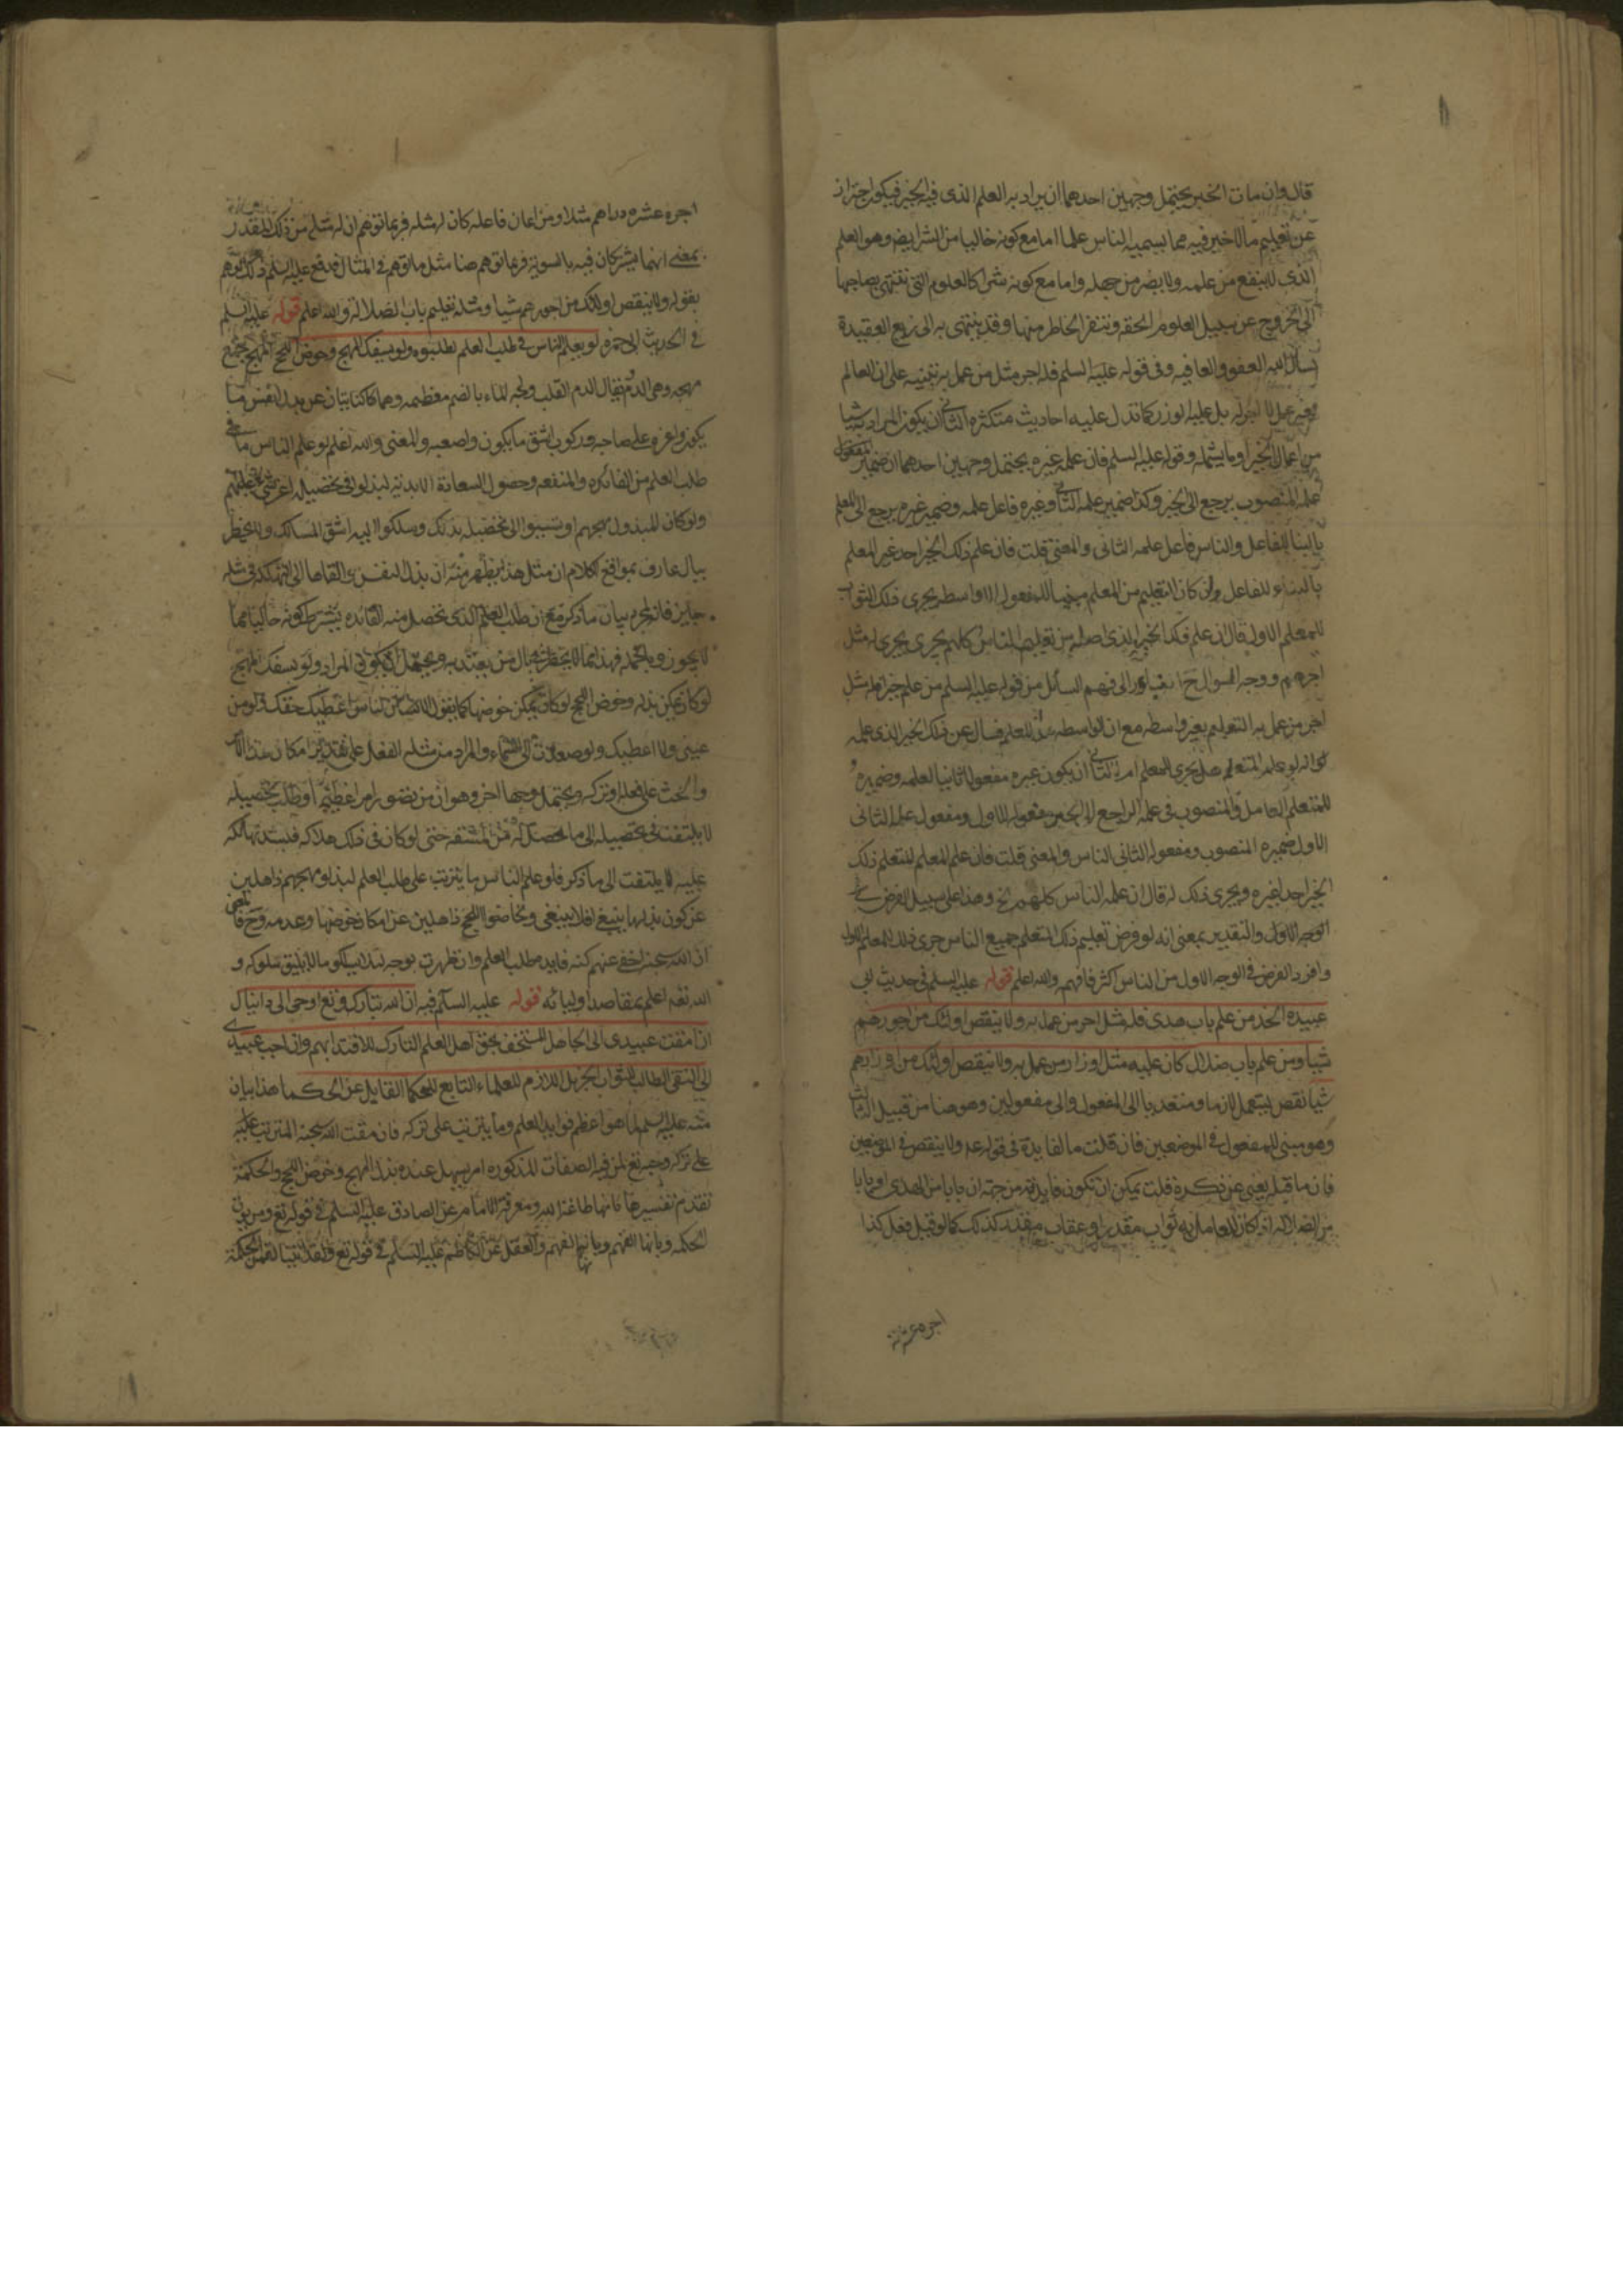 قال وان مات الخبر يحتمل وجهين احدهما ان يراد به العلم الذى فيه الخير فيكون احترازا
عن تعليم ما لا خير فيه مما يسميه الناس علما اما مع كونه خاليا من الشر ايضا وهو العلم
الذى لا ينفع من علمه ولا يضر من جهله واما مع كونه شرا كالعلوم التى تنتهى بصاحبها
الى الخروج عن سبيل العلوم الحقه وتنفر الخاطر منها وقد ينتهى به الى زيغ العقيدة
نسأل الله العفو والعافيه وفى قوله عليه السلم فله اجر مثل من عمل به تنبيه على ان العالم
بغير عمل لا اجر له بل عليه الوزر كما تدل عليه احاديث متكثره الثانى ان يكون المراد به شيا
من اعمال الخير او ما يشمله وقوله عليه السلم فان علمه غيره يحتمل وجهين احدهما ان ضمير المفعول
علمه المنصوب يرجع الى الخير وكذا ضمير علمه الثانى وغيره فاعل علمه وضمير غيره يرجع الى المعلم
بالبنا للفاعل والناس فاعل علمه الثانى والمعنى قلت فان علم ذلك الخير احد غير المعلم
بالبناء للفاعل ولو كان التعليم من المعلم مبنيا للمفعول الاواسط يجرى ذلك الثواب
للمعلم الاول قال ان علم فكذا الخير الذى اصله من تعليم الناس كلهم يجرى يجرى له مثل
اجرهم ووجه السوال ح انه تبادر الى فهم السائل من قوله عليه السلم من علم خيرا فله مثل
اجر من عمل به التعليم بغير واسطه مع ان الواسطه للعلم فسال عن ذلك الخير الذى علمه
هو انه لو علمه المتعلم هل يجرى للمعلم ام لا الثانى ان يكون غيره مفعولا ثانيا لعلمه وضميره
للمتعلم العامل والمنصوب فى علمه الراجع الى الخير مفعوله الاول ومفعول علمه الثانى
الاول ضميره المنصوب ومفعوله الثانى الناس والمعنى قلت فان علم المعلم المتعلم ذلك
الخير احدا غيره ويجرى ذلك له قال ان علمه الناس كلهم الخ وهذا على سبيل الفرض فى
الوجه الاول والتقدير بمعنى انه لو فرض تعليم ذلك المتعلم جميع الناس جرى ذلك للمعلم الاول
وافراد الفرض فى الوجه الاول من الناس اكثر فافهم والله اعلم قوله عليه السلم فى حديث ابى
عبيده الحذا من علم باب هدى فله مثل اجر من عمل به ولا ينقص اولئك من اجورهم
شيا ومن علم باب ضلال كان عليه مثل اوزار من عمل به ولا ينقص اولئك من اوزارهم
شيا نقص يستعمل لازما ومتعديا الى المفعول والى مفعولين وهو هنا من قبيل الثالث
وهو مبنى للمفعول فى الموضعين فان قلت ما الفايدة فى قوله عم ولا ينقص فى الموضعين
فان ما قبله يغنى عن ذكره قلت يمكن ان تكون فايدته من جهة ان بابا من الهدى او بابا
من الضلالة اذا كان للعامل به ثواب مقدر او عقاب مقدر كذلك كما لو قيل فعل كذا
اجره عشرة
اجره عشره دراهم مثلا ومن اعان فاعله كان له مثله فربما توهم ان له مثله من ذلك المقدر
بمعنى انهما يشتركان فيه بالسوية فربما توهم هنا مثل ما توهم فى المثال فدفع عليه السلم ذلك التوهم
بقوله ولا ينقص اولئك من اجورهم شيا ومثله تعليم باب الضلالة والله اعلم قوله عليه السلم
فى الحديث ابى حمزه لو يعلم الناس ما فى طلب العلم لطلبوه ولو بسفك المهج وخوض اللجج المهج جمع
مهجه وهى الدم يقال الدم القلب ولجه الماء بالضم معظمه وهما كنايتان عن بذل انفس ما
يكون واعزه على صاحبه وركوب اشق ما يكون واصعبه والمعنى والله اعلم لو علم الناس ما فى
طلب العلم من الفائده والمنفعه وحصول السعادة الابدية لبذلوا فى تحصيله اعز شى عليهم
ولو كان المبذول مهجهم او تسببوا الى تحصيله بذلك وسلكوا اليه اشق المسالك ولا يخطر
ببال عارف بمواقع الكلام ان مثل هذا يظهر منه ان بذل النفس والقاها الى التهلكه فى مثله
جايز فانه لمجرد بيان ما ذكر مع ان طلب العلم الذى تحصل منه الفائده يشترط كونه خاليا مما
لا يجوز وبالجمله فهذا مما لا يخطر ببال من يعتد به ويحتمل ان يكون المراد ولو بسفك المهج
لو كان يمكن بذله وخوض اللجج لو كان يمكن خوضها كما يقول الانسان للناس اعطيك حقك ولو من
عينى ولا اعطيك ولو صعدت الى السماء والمراد من مثله الفعل على تقدير امكان هذا الامر
والحث على فعله او تركه ويحتمل وجها اخر وهو ان من تصور امرا عظيما او طلب تحصيله
لا يلتفت فى تحصيله الى ما يحصل له من المشقه حتى لو كان فى ذلك هلاكه فلشدة تهالكه
عليه لا يلتفت الى ما ذكر فلو علم الناس ما يترتب على طلب العلم لبذلوا مهجهم ذاهلين
عن كون بذلها ينبغى او لا ينبغى ولخاضوا اللجج ذاهلين عن امكان خوضها وعدمه وح
ان الله سبحنه اخفى عنهم كنه فايده طلب العلم وان ظهرت بوجه لئلا يسلكوا ما لا يليق سلوكه و
الله تعه اعلم بمقاصد اوليائه قوله عليه السلم فيه ان الله تبارك وتع اوحى الى دانيال
ان امقت عبيدى الى الجاهل المستخف بحق اهل العلم التارك للاقتدا بهم وان احب عبيدى
الى التقى الطالب للثواب الجزيل اللازم للعلماء التابع للحكما القايل عن الحكما هذا بيان
منه عليه السلم لما هو اعظم فوايد العلم وما يترتب على تركه فان مقت الله سبحنه المترتب عليه
على تركه وحبه تع لمن فيه الصفات المذكوره امر يسهل عنده بذل المهج وخوض اللجج والحكمة
تقدم تفسيرها بانها طاعة الله ومعرفة الامام عن الصادق عليه السلم فى قوله تع ومن يوت
الحكمه وبانها الفهم وبانها الفهم والعقل عن الكاظم عليه السلم فى قوله تع ولقد اتينا لقمن الحكمة